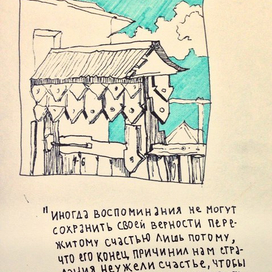 "ИНОГДА ВОСПОМИНАНИЯ НЕ МОГУТ
СОХРАНИТЬ СВОЕЙ ВЕРНОСТИ ПЕРЕ-
ЖИТОМУ СЧАСТЬЮ ЛИШЬ ПОТОМУ,
ЧТО ЕГО КОНЕЦ ПРИЧИНИЛ НАМ СТРА-
ДАНИЯ НЕУЖЕЛИ СЧАСТЬЕ, ЧТОБЫ